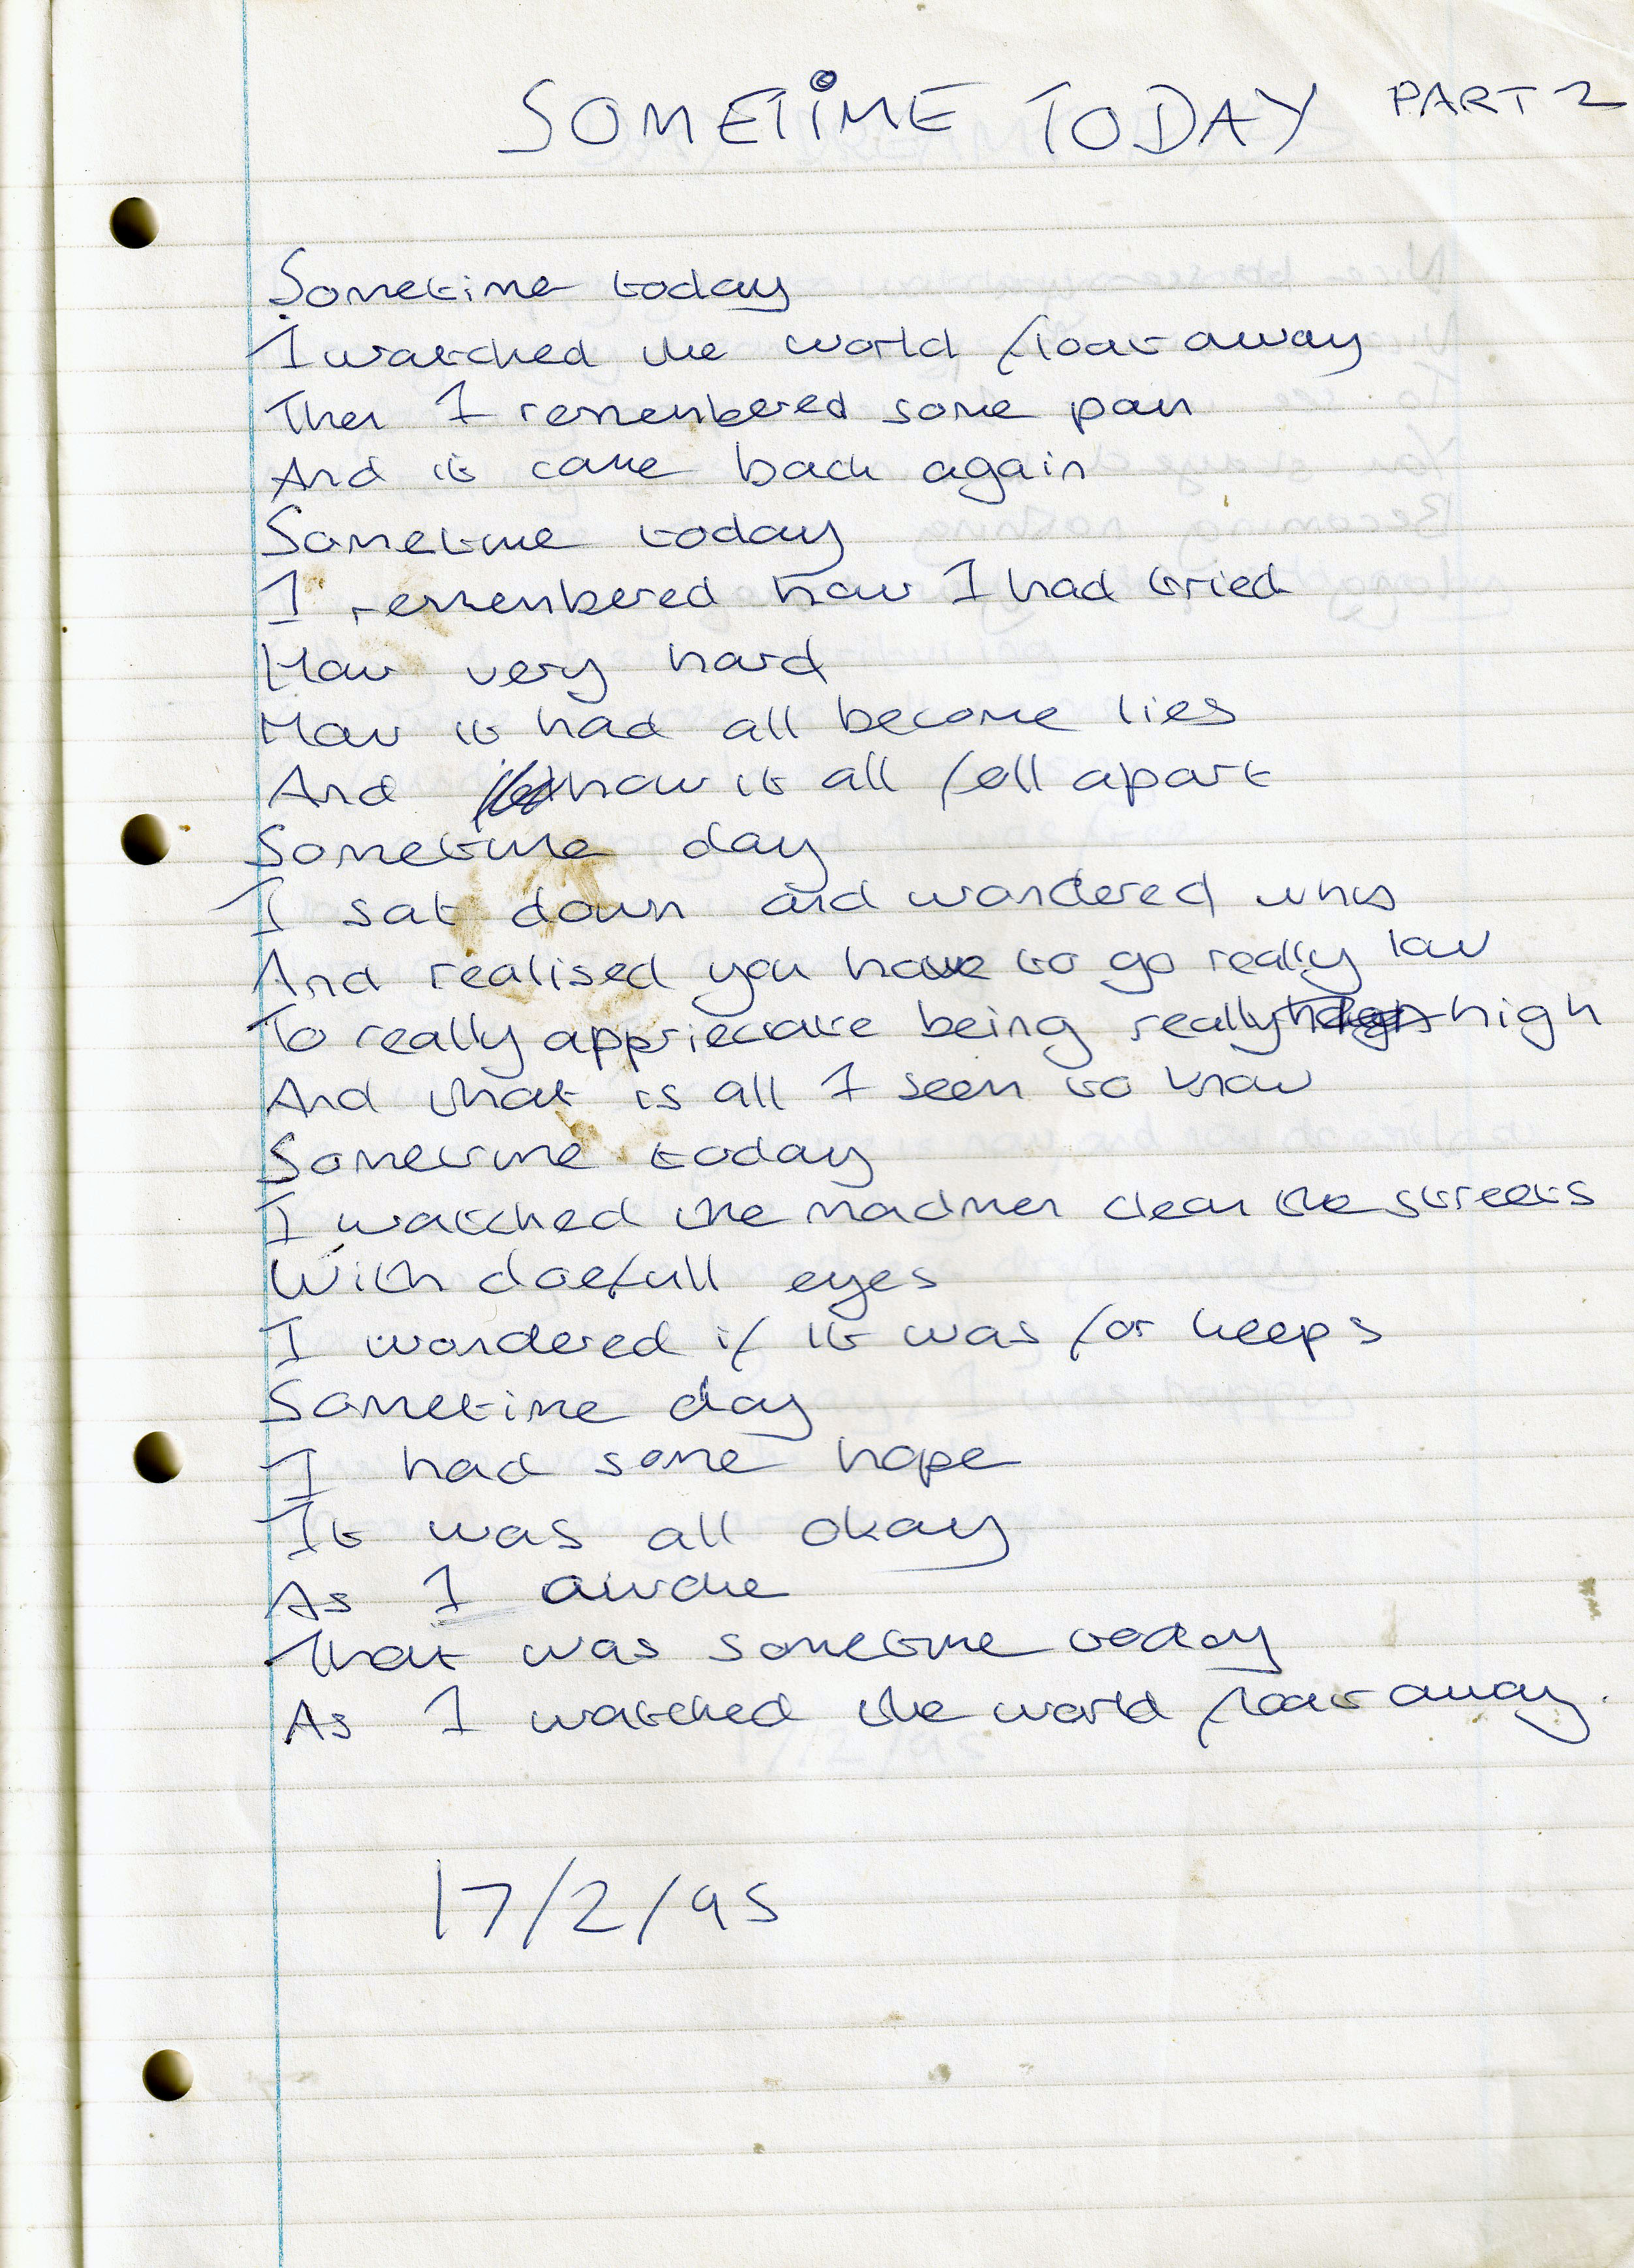 SOMETiME TODAY PART 2
Sometime today
I watched the world float away
Then I remembered some pain
And it came back again
Sometime today
I remembered how I had tried
How very hard
How it had all become lies
And how it all fell apart
Sometime day
I sat down and wondered why
And realised you have to go really low
To really apprieciate being really high
And that is all I seem to know
Sometime today
I watched the madmen clear the streets
With doefull eyes
I wondered if it was for keeps
Sometime day
I had some hope
It was all okay
As I awoke
That was sometime today
As I watched the world float away.
17/2/95